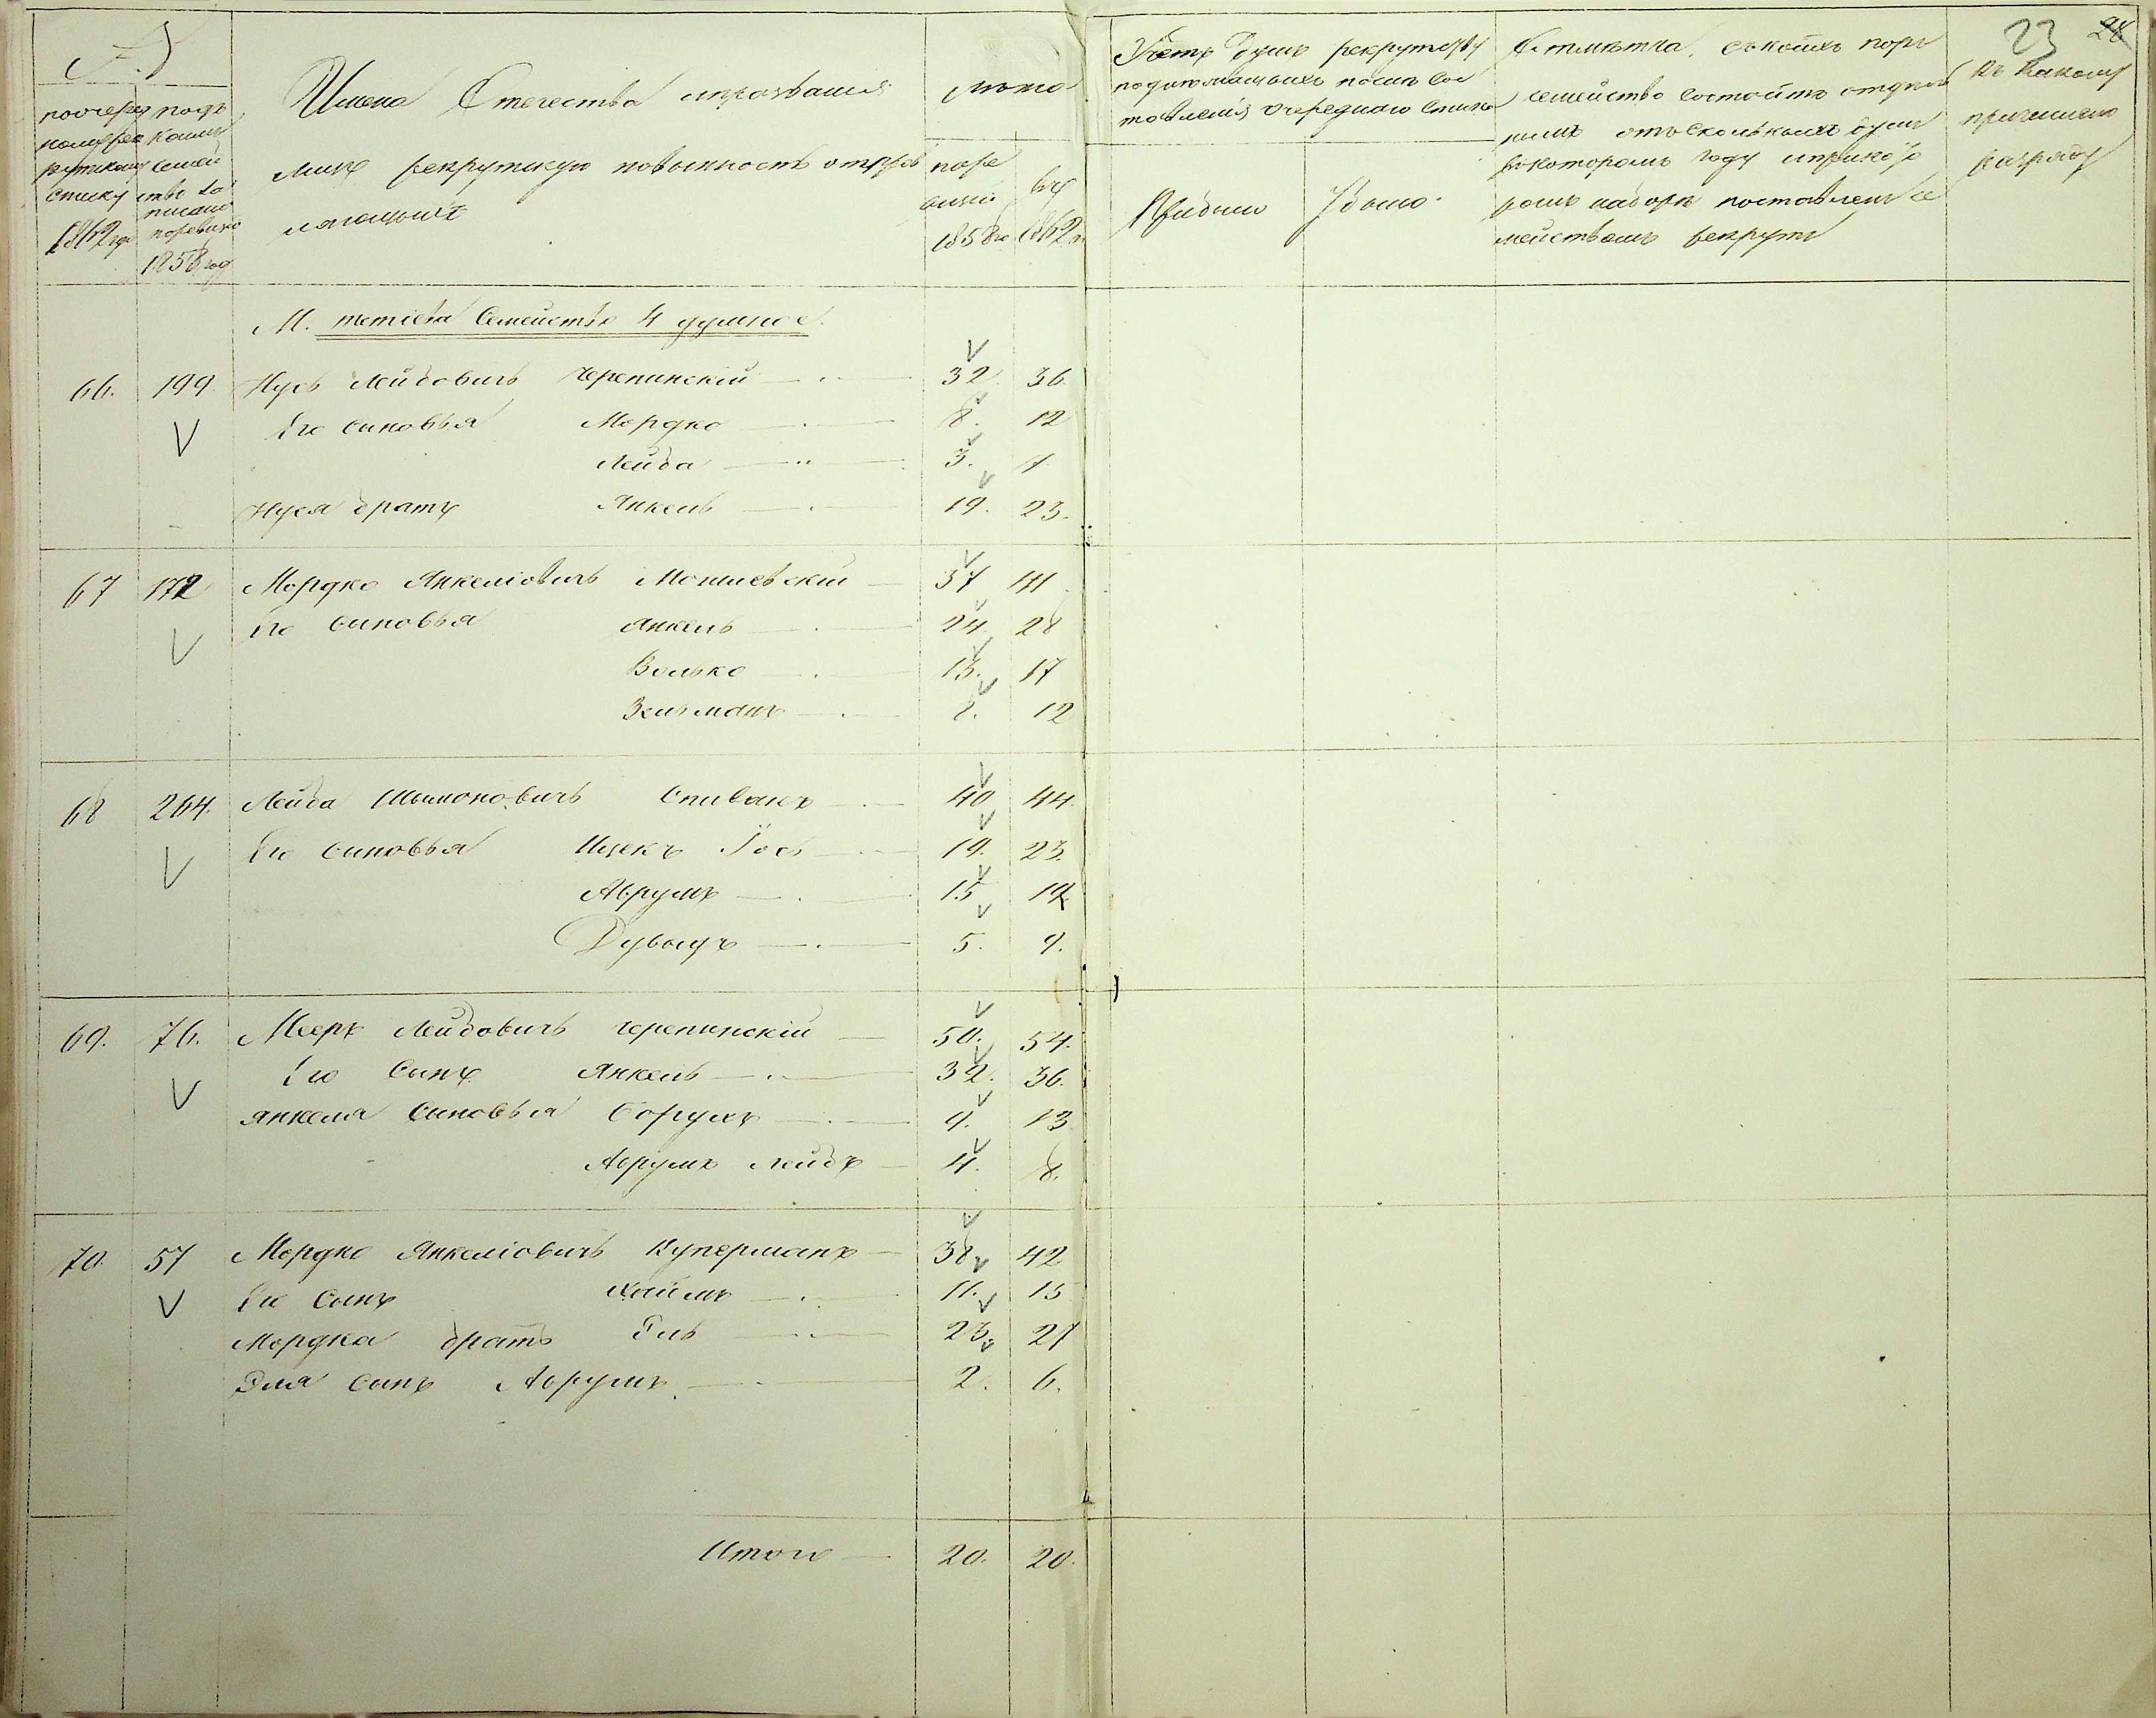 23 28
№
по очеред
ному рек
рутскому
списку
1862 года
подъ
коимъ
семей
ство за
писано
по ревизіи
1858 год
Имена Отечества и прозвания
лицъ рекрутскую повинность отправ
ляющихъ
лѣта
по ре
визіи
1858 го
въ
1862 г.
Счетъ душъ рекрутству
подлежащихъ послѣ сос
тавленія очереднаго списка
Прибыло
Убыло
Отмѣтка, съ коихъ поръ
семейство состоитъ отдѣль
нымъ отъ сколькихъ душъ
въ которомъ году и при кото
ромъ наборѣ поставленъ се
мействомъ рекрутъ
Къ какому
причислено
разряду
М. Тетіева Семейство 4 душное.
66. 199. Нусь Лейбовичъ Черепинскій 32 36.
Его сыновья Мордко 8. 12
Лейба 3. 7
Нуся братъ Янкель 19. 23.
67 172 Мордко Янкеліовичъ Мошіевскій 37 41
Его сыновья Янкель 24 28
Волько 13. 17
Зельманъ 8. 12
68 264. Лейба Шымоновичъ Спивакъ 40 44.
Его сыновья Ицекъ Іось 19. 23.
Аврумъ 15 19
Дувыдъ 5. 9.
69. 76. Мееръ Лейбовичъ Черепинскій 50. 54.
Его сынъ Янкель 32. 36.
Янкеля сыновья Борухъ 9. 13
Аврумъ Лейбъ 4. 8.
70. 57 Мордко Янкеліовичъ Куперманъ 38 42
Его сынъ Хаимъ 11. 15
Мордка братъ Эль 23. 27
Эля сынъ Аврумъ 2. 6.
Итого 20. 20.